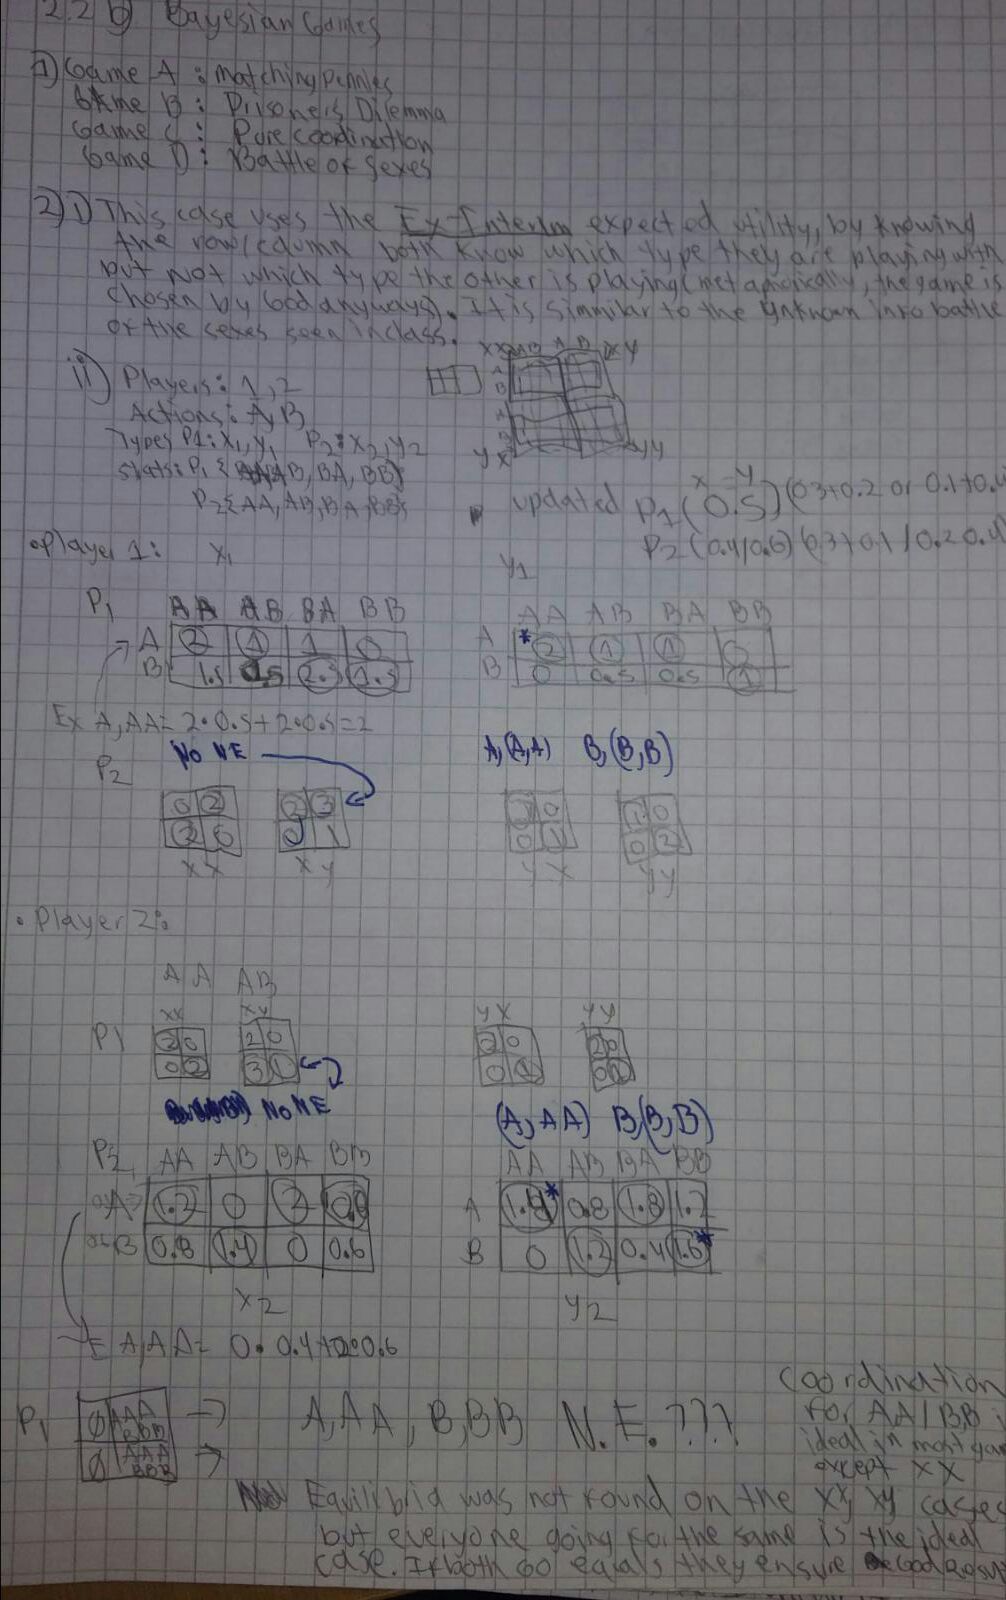 2.2 b) Bayesian Games
1) Game A : matching pennies
Game B : Prisoners Dilemma
Game C : Pure coordination
Game D : Battle of sexes
2) i) This case uses the Ex-Interim expected utility, by knowing
the row/column both know which type they are playing with
but not which type the other is playing (metaphorically, the game is
chosen by God anyways). It is simmilar to the unknown info battle
of the sexes seen in class.
XX AB A B XY
ii) Players: 1, 2
Actions: A, B
Types P1: X1, Y1 P2: X2, Y2
YX YY
AB, BA, BB}
P2 {AA, AB, BA, BB}
X = Y
updated P1 (0.5) (0.3+0.2 or 0.1+0.4
P2 (0.4/0.6) (0.3+0.1 / 0.2 0.4
• Player 1: X1 Y1
P1 AA AB BA BB AA AB BA BB
A 2 1 1 0 A * 2 1 1 0
B 1.5 0.5 2.5 1.5 B 0 0.5 0.5 1
Ex A, AA = 2·0.5 + 2·0.5 = 2
NO NE A, (A,A) B, (B,B)
P2
0 2 2 3 0 1 0
3 0 0 1 0 1 0 2
XX XY YX YY
• Player 2:
AA AB
XX XY YX YY
P1
2 0 2 0 2 0 2 0
0 2 3 1 0 1 0 1
NO NE (A, AA) B(B,B)
P2 AA AB BA BB AA AB BA BB
A 1.2 0 2 A 1.8* 0.8 1.8 1.2
B 0.8 1.4 0 0.6 B 0 1.2 0.4 1.6*
X2 Y2
E A, AA = 0·0.4+2·0.6
P1 Ø AAA BBB → A, AA, B, BB N.E.???
Ø AAA BBB →
Coordination
for AA/BB i
ideal in most gam
except XX
Equilibria was not found on the XX, XY cases
but everyone going for the same is the ideal
case. If both go equals they ensure